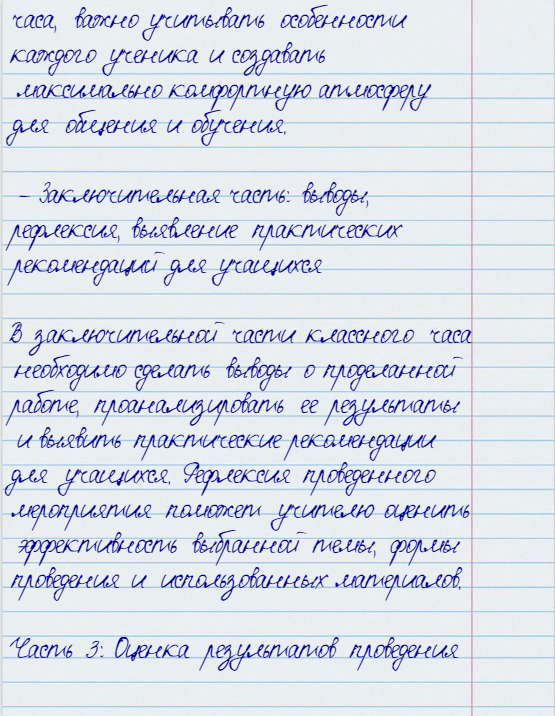 часа, важно учитывать особенности
каждого ученика и создавать
максимально комфортную атмосферу
для общения и обучения.
- Заключительная часть: выводы,
рефлексия, выявление практических
рекомендаций для учащихся
В заключительной части классного часа
необходимо сделать выводы о проделанной
работе, проанализировать ее результаты
и выявить практические рекомендации
для учащихся. Рефлексия проведенного
мероприятия поможет учителю оценить
эффективность выбранной темы, формы
проведения и использованных материалов.
Часть 3: Оценка результатов проведения